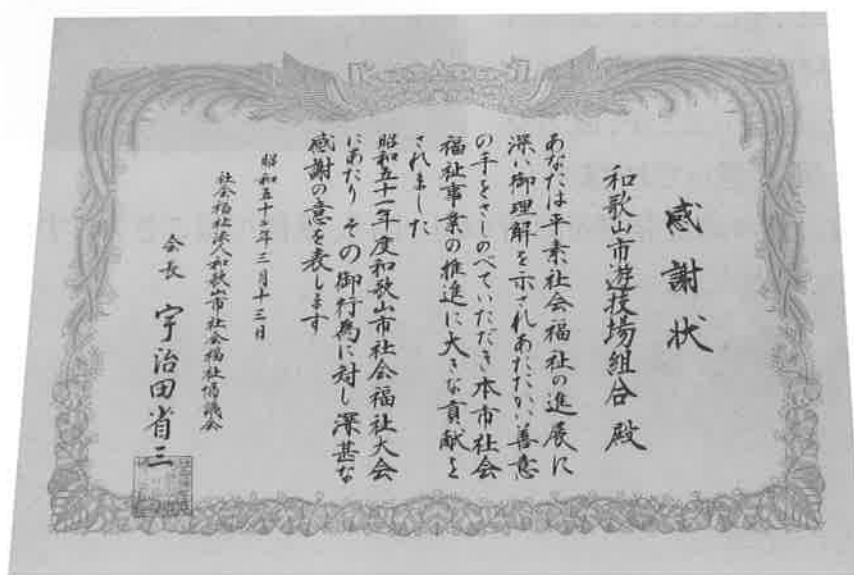 感謝状
和歌山市遊技場組合 殿
あなたは平素社会福祉の進展に
深い御理解を示されあたたかい善意
の手をさしのべていただき本市社会
福祉事業の推進に大きな貢献を
されました
昭和五十一年度和歌山市社会福祉大会
にあたり その御行為に対し深甚な
感謝の意を表します
昭和五十二年三月十三日
社会福祉法人和歌山市社会福祉協議会
会長 宇治田省三